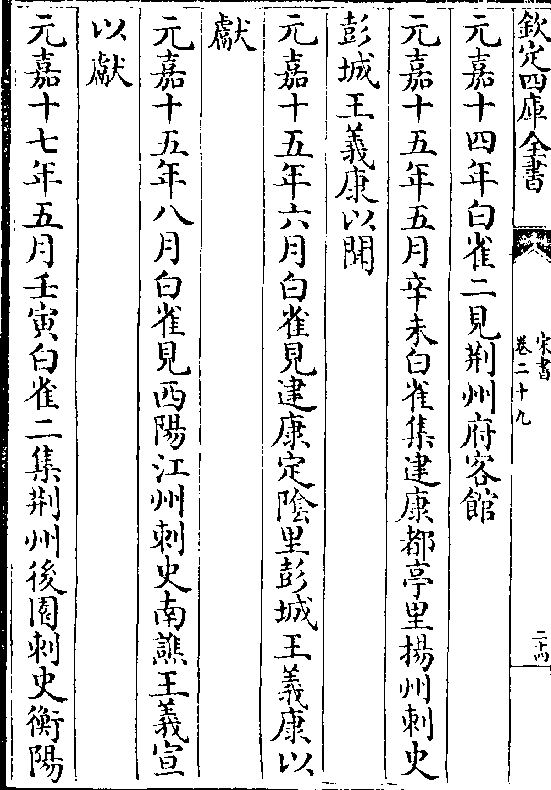 欽定四庫全書
宋書
卷二十九
二十四
元嘉十四年白雀二見荆州府客館
元嘉十五年五月辛未白雀集建康都亭里揚州刺史
彭城王義康以聞
元嘉十五年六月白雀見建康定隂里彭城王義康以
獻
元嘉十五年八月白雀見西陽江州刺史南譙王義宣
以獻
元嘉十七年五月壬寅白雀二集荆州後園刺史衡陽